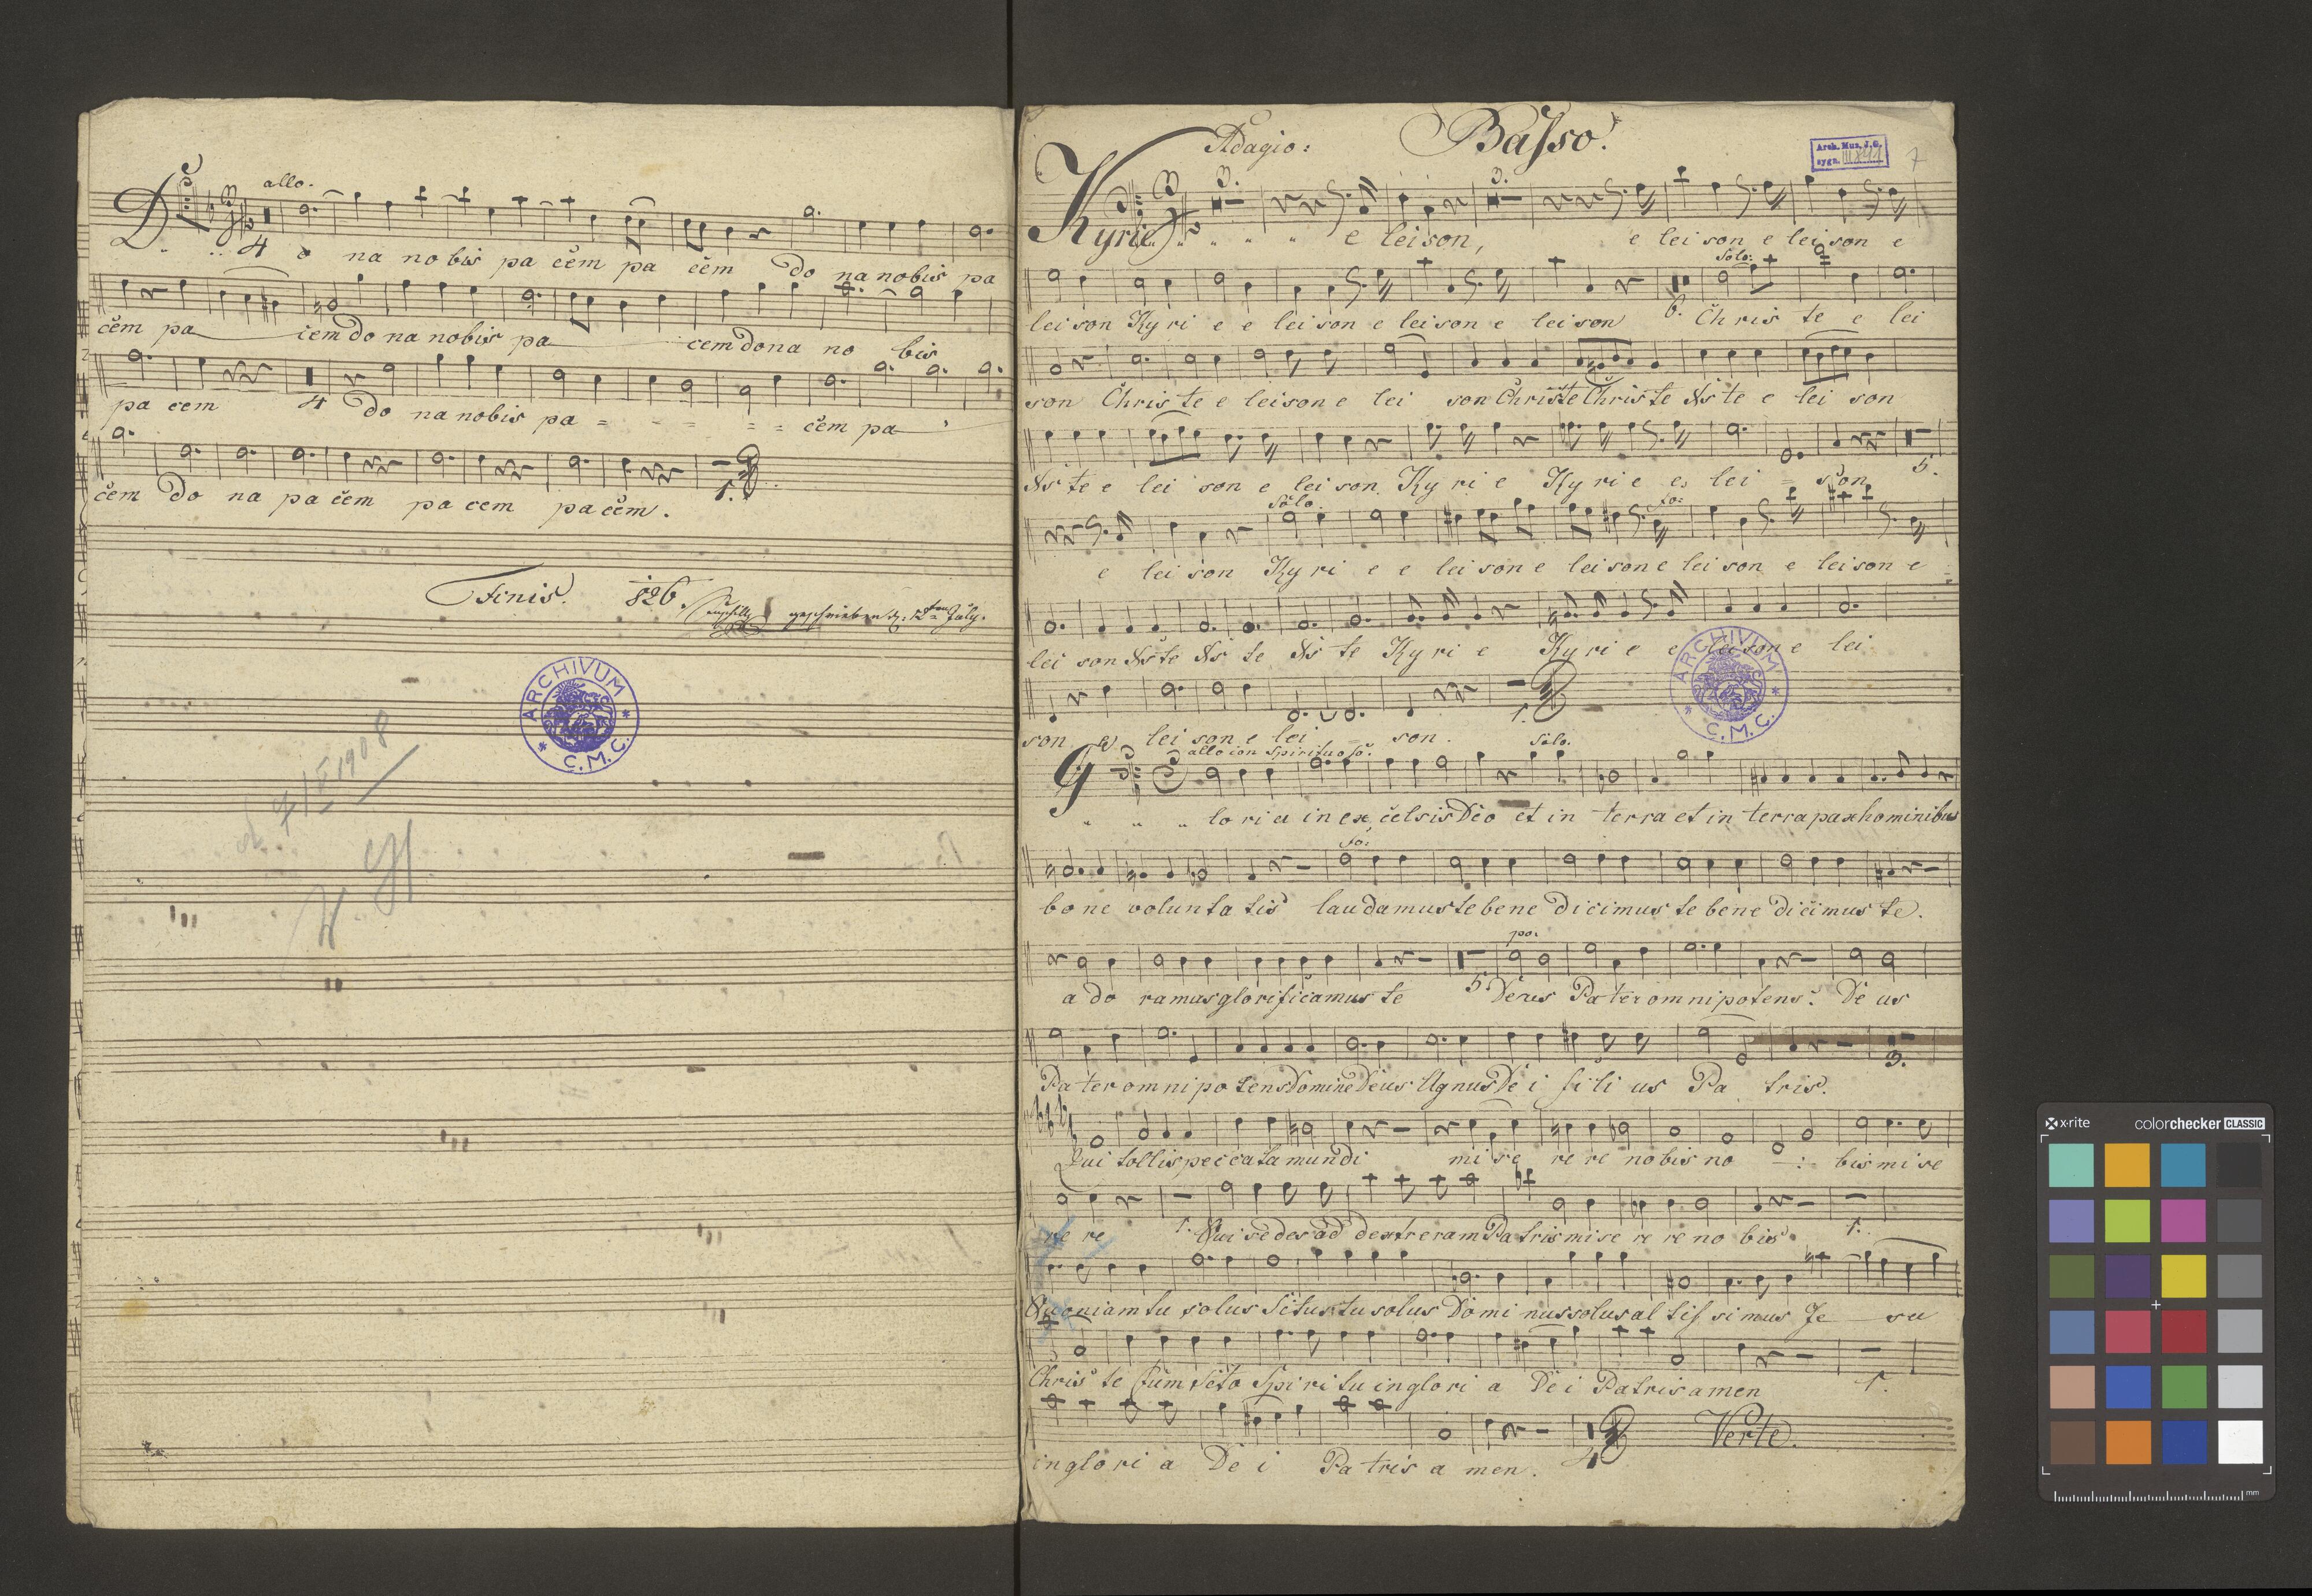 allo.
D 4 o na no bis pa cem pa cem do na nobis pa
cem pa cem do na nobis pa cem dona no bis
pa cem 4 do na nobis pa = - = = = cem pa
cem do na pa cem pa cem pa cem.
1.
Finis. 826. geschrieben d. 12ten July.
ARCHIVUM
* C.M.C. *
7/V 1908
Adagio: Basso.
Arch. Muz. J. G.
sygn. III 841
7
3. 3.
Kyrie e leison, e lei son e leison e
Solo:
leison Kyri e e leison e leison e leison 6. Chris te e lei
son Chris te e leison e lei son Christe Christe Xs te e lei son
Xs te e lei son e leison Kyri e Kyri e e lei = son 5.
Solo. fo:
e lei son Kyri e e leison e leison e lei son e leison e
lei son Xste Xs te Xs te Kyri e Kyri e e leison e lei
ARCHIVUM
* C.M.C. *
1.
son e lei son e lei - son.
allo con spirituoso. Solo.
G lo ri a in ex celsis Deo et in terra et in terra pax hominibus
fo:
bo ne volunta tis laudamus te bene dicimus te bene dicimus te.
po:
a do ramus glorificamus te 5. Deus Pater omnipotens. De us
3.
Pater omnipo tens Domine Deus Agnus De i fili us Pa tris.
Qui tollis peccata mundi mi se re re nobis no - : bis mi se
re re 1. Qui sedes ad dextreram Patris mise re re no bis. 1.
Quoniam tu solus Sctus tu solus Domi nus solus al tis si mus Je su
Chris te Cum Scto Spiri tu in glori a De i Patris amen 1.
in glo ri a De i Pa tris a men. 4 Verte.
x·rite colorchecker CLASSIC
mm